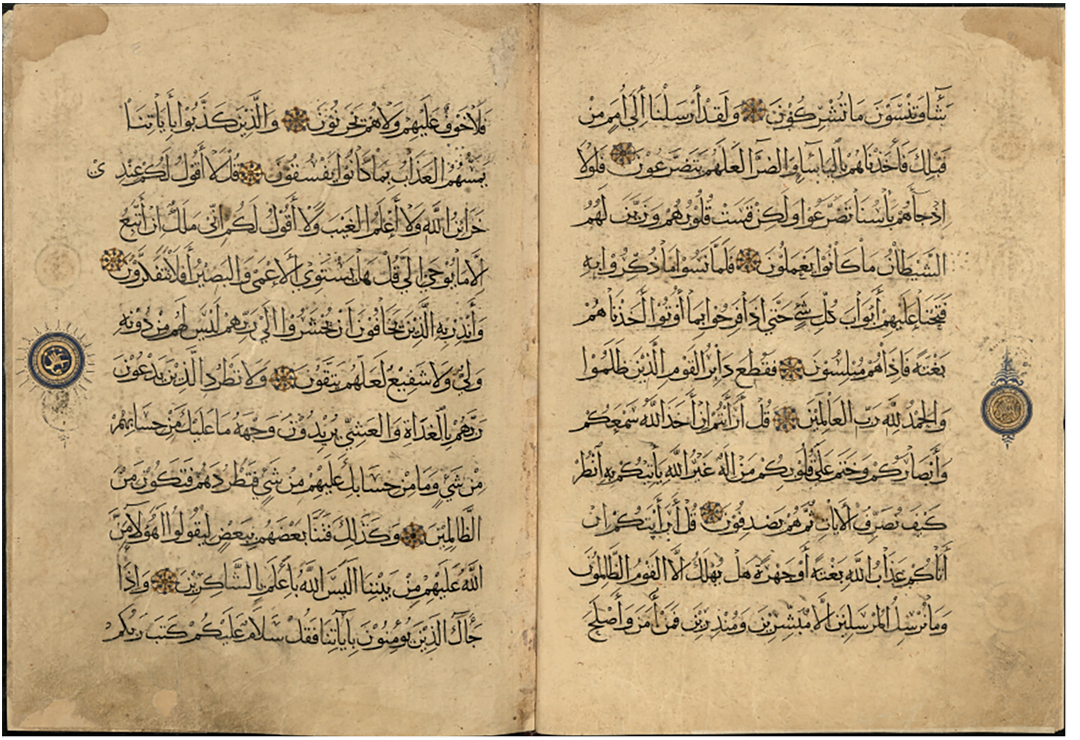 شآء وتنسون ما تشركون ولقد أرسلنا إلى أمم من
قبلك فأخذناهم بالبأسآء والضرآء لعلهم يتضرعون فلولا
إذ جآءهم بأسنا تضرعوا ولكن قست قلوبهم وزين لهم
الشيطان ما كانوا يعملون فلما نسوا ما ذكروا به
فتحنا عليهم أبواب كل شئ حتى إذا فرحوا بما أوتوا أخذناهم
بغتة فإذا هم مبلسون فقطع دابر القوم الذين ظلموا
والحمد لله رب العالمين قل أرأيتم إن أخذ الله سمعكم
وأبصاركم وختم على قلوبكم من اله غير الله يأتيكم به انظر
كيف نصرف الآيات ثم هم يصدفون قل أرأيتكم إن
أتاكم عذاب الله بغتة أو جهرة هل يهلك إلا القوم الظالمون
وما نرسل المرسلين إلا مبشرين ومنذرين فمن آمن وأصلح
فلا خوف عليهم ولا هم يحزنون والذين كذبوا بآياتنا
يمسهم العذاب بما كانوا يفسقون قل لا أقول لكم عندي
خزائن الله ولا أعلم الغيب ولا أقول لكم إني ملك إن أتبع
إلا ما يوحى إلي قل هل يستوي الأعمى والبصير أفلا تتفكرون
وأنذر به الذين يخافون أن يحشروا إلى ربهم ليس لهم من دونه
ولي ولا شفيع لعلهم يتقون ولا تطرد الذين يدعون
ربهم بالغداة والعشي يريدون وجهه ما عليك من حسابهم
من شئ وما من حسابك عليهم من شئ فتطردهم فتكون من
الظالمين وكذلك فتنا بعضهم ببعض ليقولوا أهؤلآء من
الله عليهم من بيننا أليس الله بأعلم بالشاكرين وإذا
جآءك الذين يؤمنون بآياتنا فقل سلام عليكم كتب ربكم